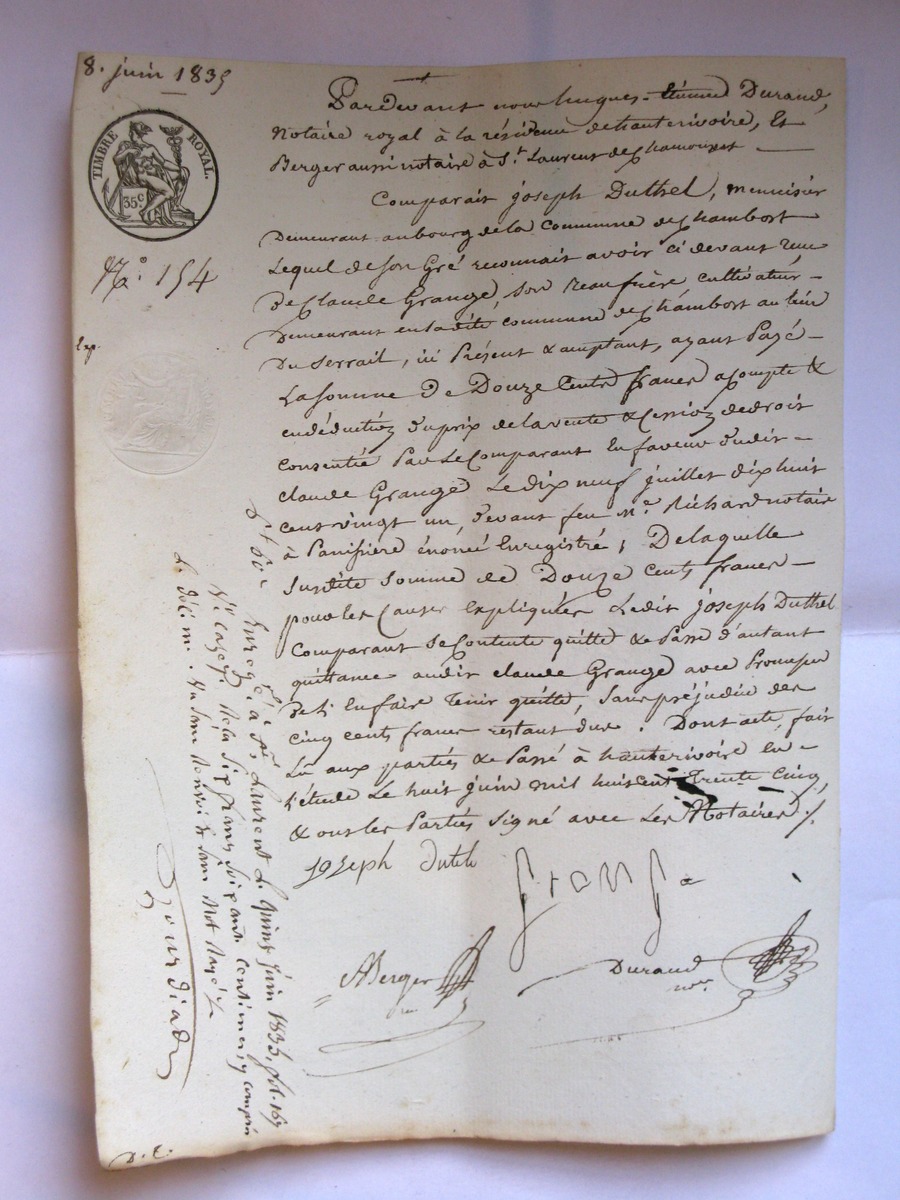 8. juin 1835
TIMBRE ROYAL.
35c.
N.o 154
Exp.
Pardevant nous hugues-étienne Durand,
Notaire royal à la résidence de hauterivoire, Et
Berger aussi notaire à St. Laurent de Chamousset
Comparait joseph Duthel, menuisier
Demeurant au bourg de la Commune de Chambost
Lequel de son Gré reconnait avoir ci devant reçu
De Claude Grange, son Beaufrère, cultivateur
Demeurant en la dite commune de Chambost au lieu
Du Serrail, ici Présent & acceptant, ayant Payé
La Somme De Douze Cents francs acompte &
en déduction du prix de la vente & Cession de droit
Consentie Par Le Comparant En faveur dudit
claude Grange Le dix neuf juillet dix huit
cent vingt un, devant feu Me. Richard notaire
à Panissière énoncé Enregistré ; De laquelle
Susdite Somme de Douze Cents francs
pour les Causes Expliquées Ledit joseph Duthel
Comparant Se Contente quitte & Passe d'autant
quittance audit claude Grange avec Promesse
De l'En faire Tenir quitte, Sans préjudice des
Cinq Cents francs restant dus. Dont acte, fait
Lu aux parties & Passé à hauterivoire En
l'étude Le huit juin mil huit cent Trente Cinq,
& ont les Parties Signé avec Les Notaires ./.
joseph dutel
grange
ABerger
Durand
nre
Enregé à St. Laurent L. quinze juin 1835, fol. 167
Vo. cases
Reçu Six francs Soixante centimes y compris
L. décime. un sans renvoi & sans mot rayé
Gourdiat
D. E.